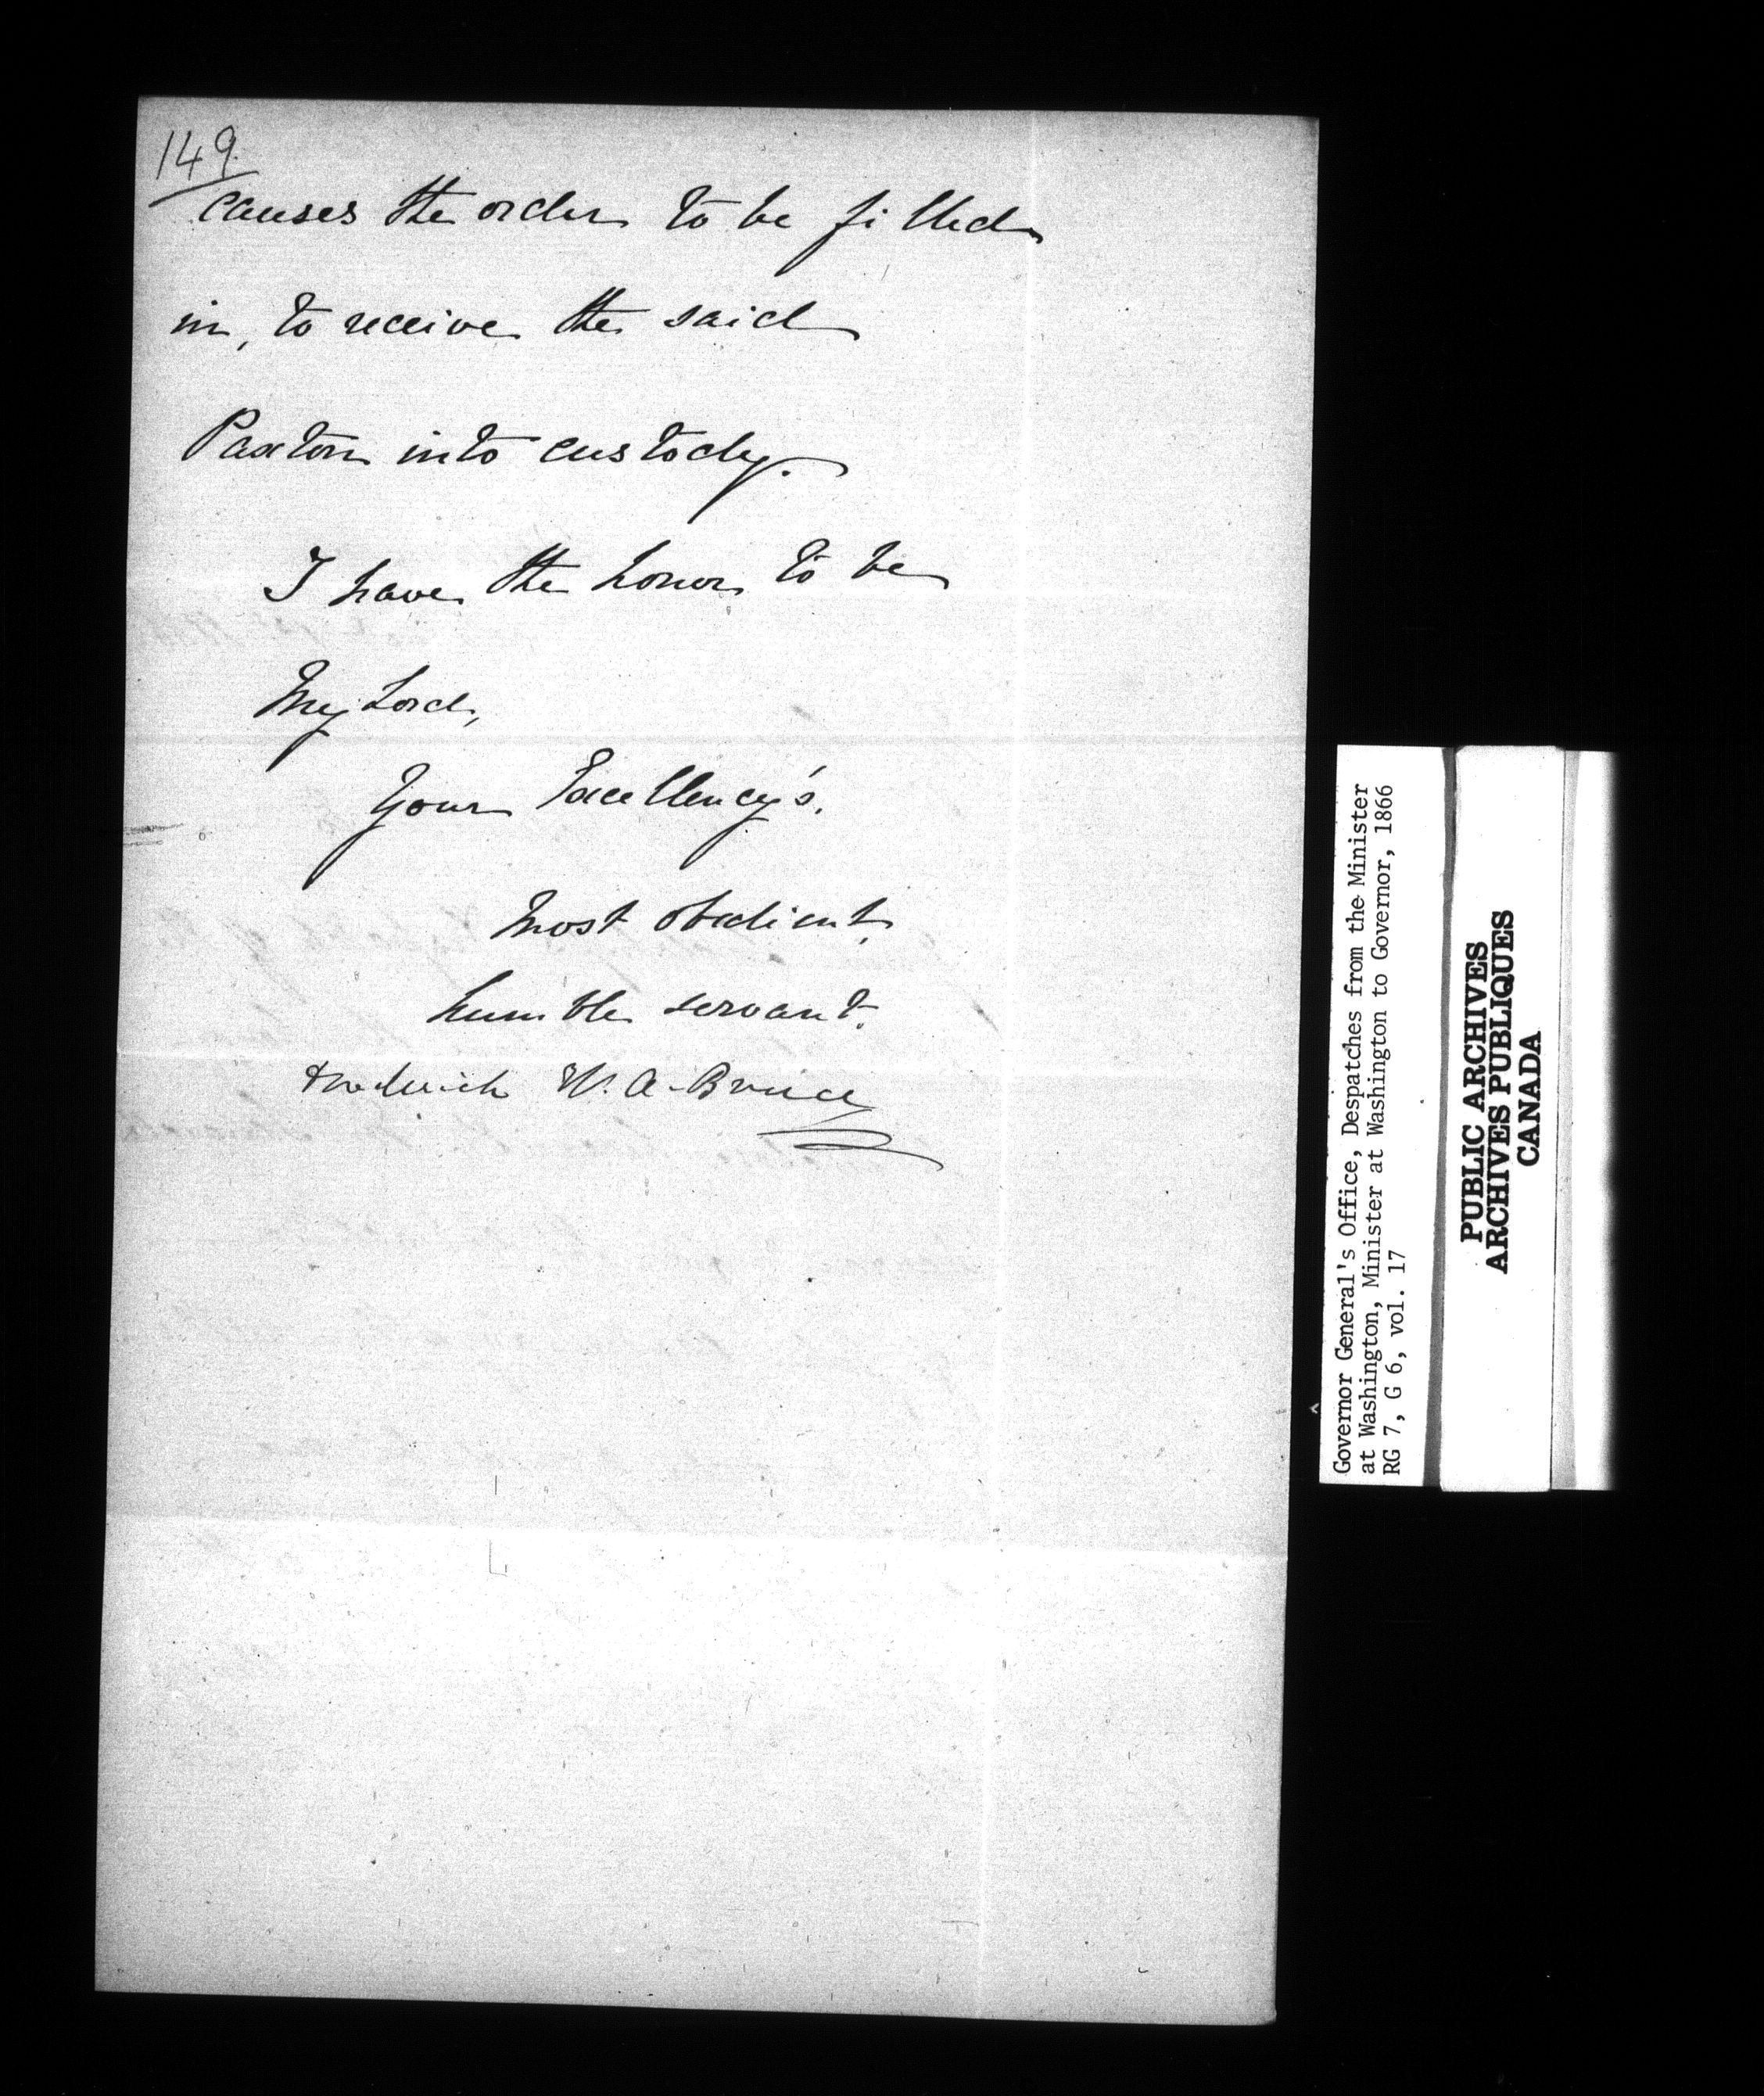 149.
causes the order to be filled
in, to receive the said
Paxton into custody.
I have the honor to be
My Lord,
Your Excellency's.
Most obedient.
humble servant.
Frederick W. A. Bruce
Governor General's Office, Despatches from the Minister
at Washington, Minister at Washington to Governor, 1866
RG 7, G 6, vol. 17
PUBLIC ARCHIVES
ARCHIVES PUBLIQUES
CANADA